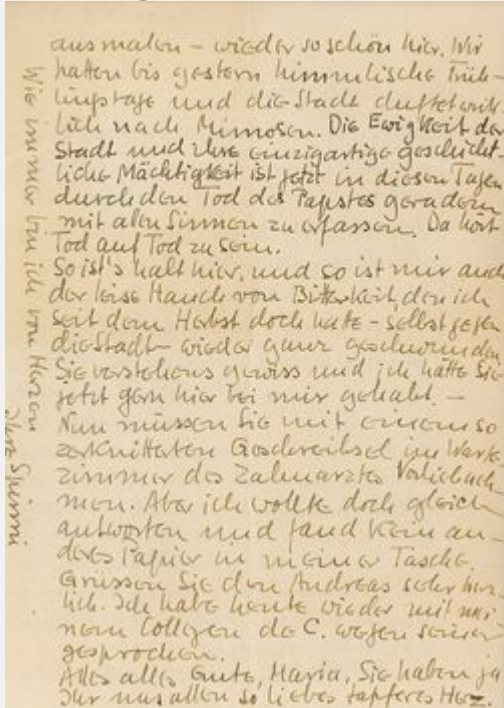 ausmalen – wieder so schön hier. Wir
hatten bis gestern himmlische Früh-
lingstage und die Stadt duftet wirk-
lich nach Mimosen. Die Ewigkeit der
Stadt und ihre einzigartige geschicht-
liche Mächtigkeit ist jetzt in diesen Tagen
durch den Tod des Papstes geradezu
mit allen Sinnen zu erfassen. Da hört
Tod auf Tod zu sein.
So ist's halt hier, und so ist mir auch
der leise Hauch von Bitterkeit, den ich
seit dem Herbst doch hatte – selbst gegen
die Stadt – wieder ganz geschwunden
Sie verstehens gewiss und ich hätte Sie
jetzt gern hier bei mir gehabt. –
Nun müssen Sie mit einem so
zerknitterten Geschreibsel im Warte
zimmer des Zahnarztes Vorlieb neh
men. Aber ich wollte doch gleich
antworten und fand kein an-
deres Papier in meiner Tasche.
Grüssen Sie den Andreas sehr herz-
lich. Ich habe heute wieder mit mei-
nem Collegen de C. wegen seiner
gesprochen.
Alles alles Gute, Maria, Sie haben ja
Ihr uns allen so liebes tapferes Herz.
Wie immer bin ich von Herzen
Ihre